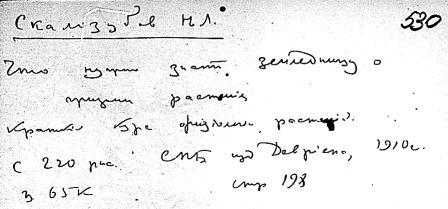 Скалзубов Н.Л. 530
Что нужно знат. земледельцу о
жизни растения
Кратк. физиолог. растений.
С 220 рис. СПБ изд Девриена, 1910 г.
3 65К стр 198